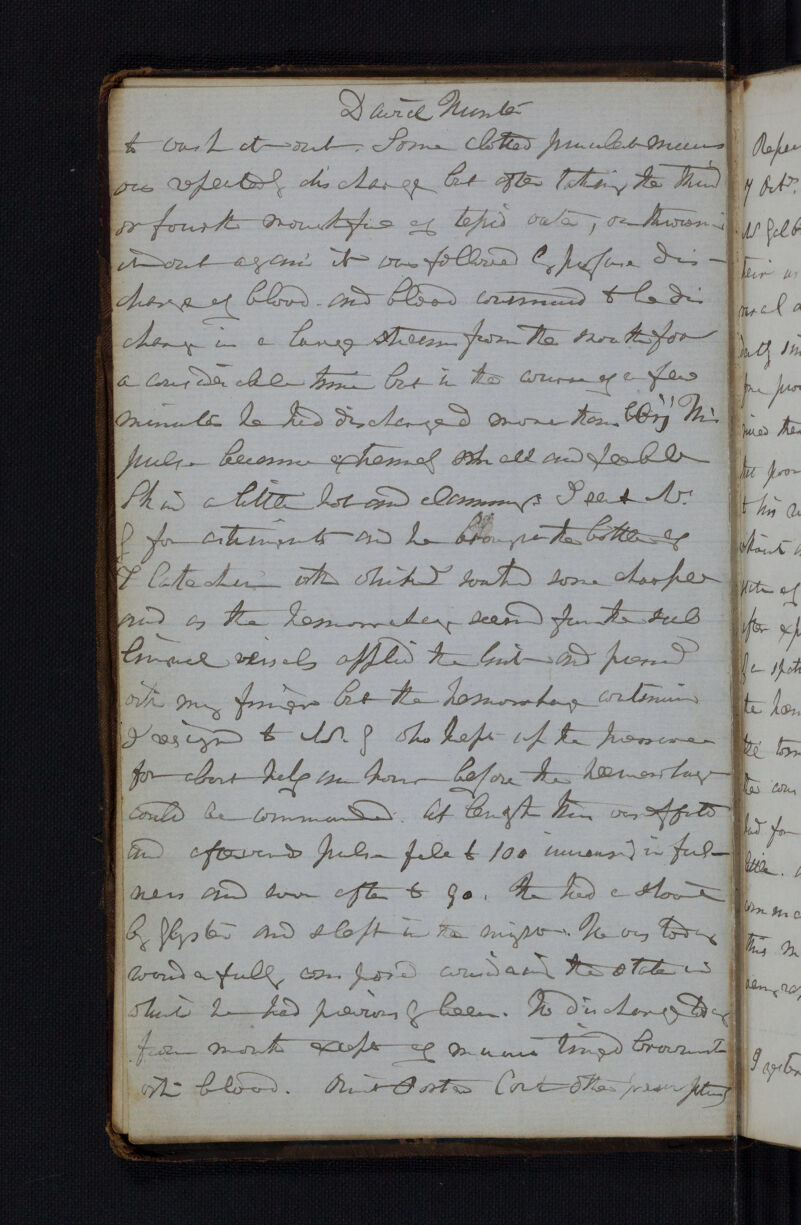 David Hunter
to wash it out. Some clotted purulent mucus
was repeatedly discharged but after taking the third
or fourth mouthful of tepid water, on throwing
it out again it was followed by profuse dis-
charge of blood and blood continued to be dis
charged in a large stream from the mouth for
a considerable time but in the course of a few
minutes he had discharged more than His
pulse became extremely small and feeble
Skin a little hot and clammy. I sent Mr.
G for astringents and he brought the bottle of
T Catechu with which I some
and as the hemorrhage seemed from the sub
lingual vessels applied the lint and pressed
with my finger but the hemorrhage continued
I resigned to Mr. G who kept up the pressure
for about half an hour before the hæmorrhage
could be commanded. At length this was effected
and afterwards pulse fell to 100 increased in full-
ness and soon after to 90. He had a stool
by glyster and slept in the night. He was today
wonderfully composed considering the state in
which he had previously been. No discharge today
from mouth except of mucus tinged brownish
with blood. Omit Porter Cont other prescriptions
7 Octr.
Mr Gilb
his
the
the
had for
this